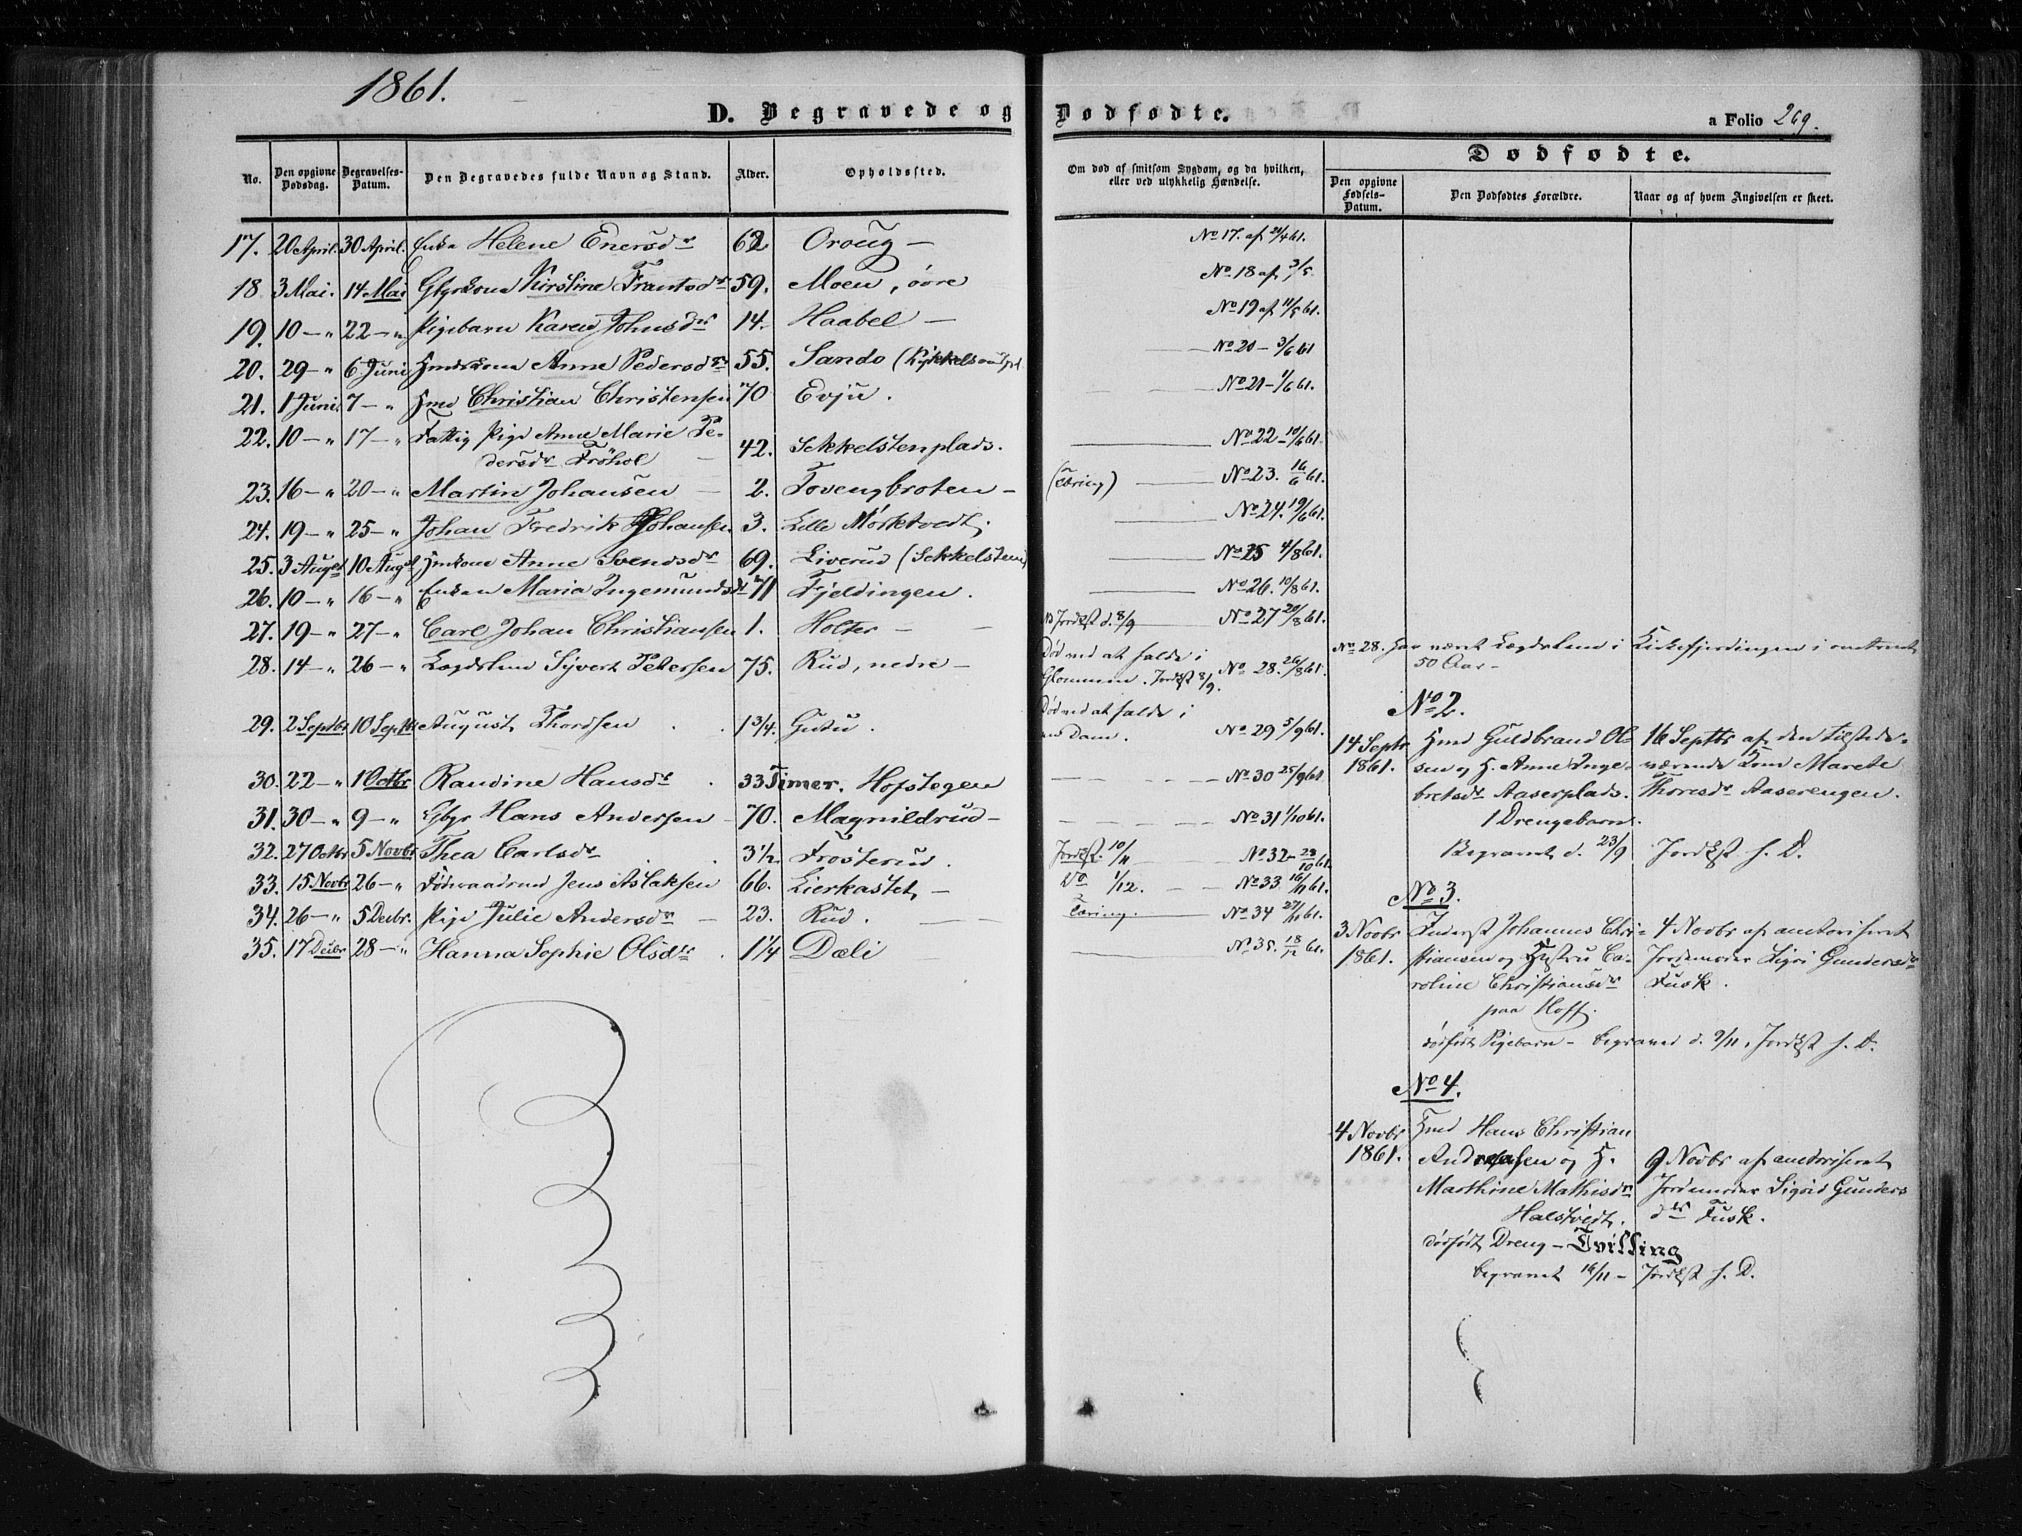 1861.
D. Begravede og Dødfødte.
a Folio 269.
No.
Den opgivne Dødsdag.
Begravelses-Datum.
Den Begravedes fulde Navn og Stand.
Alder.
Opholdssted.
Om død af smitsom Sygdom, og da hvilken,
eller ved ulykkelig Hændelse.
Dødfødte.
Den opgivne Fødsels-Datum.
Den Dødfødtes Forældre.
Naar og af hvem Angivelsen er skeet.
17. 20 April. 30 April. Enke Helene Enersdr 62 Oroug – No 17. af 21/4 61.
18 3 Mai. 14 Mai Gbrkona Kirstine Frantsdr 59. Moen, øvre No 18 af 3/5.
19. 10 – „ 22 – „ Pigebarn Karen Johnsdr 14. Haabel – No 19 af 11/5 61.
20. 29 – „ 6 Juni Hmdskona Anne Pedersdr 55. Sando No 20 – 3/6 61
21. 1 Juni 7 – „ Hmd Christian Christensen 70 Evju. No 21 – 1/6 61.
22. 10 – „ 17 – „ Fattig Pige Anne Marie Pe-
dersdr Frøhol 42. Sekkelstenplads. No 22 – 10/6 61.
23. 16 – „ 20 – „ Martin Johansen 2. Tovengbroten – (Tæring) No 23. 16/6 61.
24. 19 – „ 25 – „ Johan Fredrik Johansen 3. Lille Mørktvedt. No 24. 19/6 61.
25. 3 August 10 August Hmkone Anne Svendsdr 69. Liverud (Sekkelsten) No 25 4/8 61.
26. 10 – „ 16 – „ Enken Maria Ingemundsdr 71 Fjeldingen. No 26. 10/8 61.
27. 19 – „ 27 – „ Carl Johan Christiansen 1. Holter – Jordkst d. 8/9 No 27 20/8 61.
28. 14 – „ 26 – „ Lægdslem Syvert Petersen 75. Rud, nedre – Død ved at falde i
Glommen. Jordkst 8/9. No 28. 26/8 61.
No 28. Har været Lægdslem i Kirkefjerdingen i omtrent
50 Aar –
29. 2 Septbr 10 Septbr August Thordsen 1 3/4. Gutu. Død ved at falde i
en Dam. No 29 5/9 61.
30. 22 – „ 1 Octbr Randine Hansdr 33 Timer. Hofstegen No 30 25/9 61
31. 30 – „ 9 – „ Gbgr Hans Andersen 70. Magnildrud – No 31 1/10 61.
32. 27 Octbr 5 Novbr Thea Carlsdr 3 1/2. Frosterud. Jordkst. 10/11 No 32 – 28/10 61.
33. 15 Novbr 26 – „ Føderaadsmd Jens Aslaksen 66. Lierkastet – Do 1/12. No 33 16/11 61.
34. 26 – „ 5 Decbr. Pige Julie Andersdr – 23. Rud. Tæring. No 34 27/11 61.
35. 17 Decbr 28 – „ Hanna Sophie Olsdtr 1 1/4 Dæli No 35. 18/12 61.
No 2.
14 Septr 1861. Hmd Guldbrand Ol-
sen og H. Anne Inge-
bretsdr Aaserplads.
1 Drengebarn.
16 Septbr af den tilstede-
værende Kone Marete
Thoresdr Aaserengen.
Begravet d. 23/9 Jordkst s. D.
No 3.
3 Novbr 1861. Inderst Johannes Chri-
stiansen og Hustru Ca-
roline Christiansdr
paa Hoff.
4 Novbr af autoriseret
Jordemoder Sigri Gundersdr
Fusk.
dødfødt Pigebarn – begravet d. 9/11, Jordkst s. D.
No 4.
4 Novbr 1861. Hmd Hans Christian
Andreasen og H.
Marthine Mathisdr
Halstvedt.
9 Novbr af autoriseret
Jordemoder Sigrid Gunders
dtr Fusk.
dødfødt Dreng – Tvilling
begravet 16/11 – Jordkst s. D.